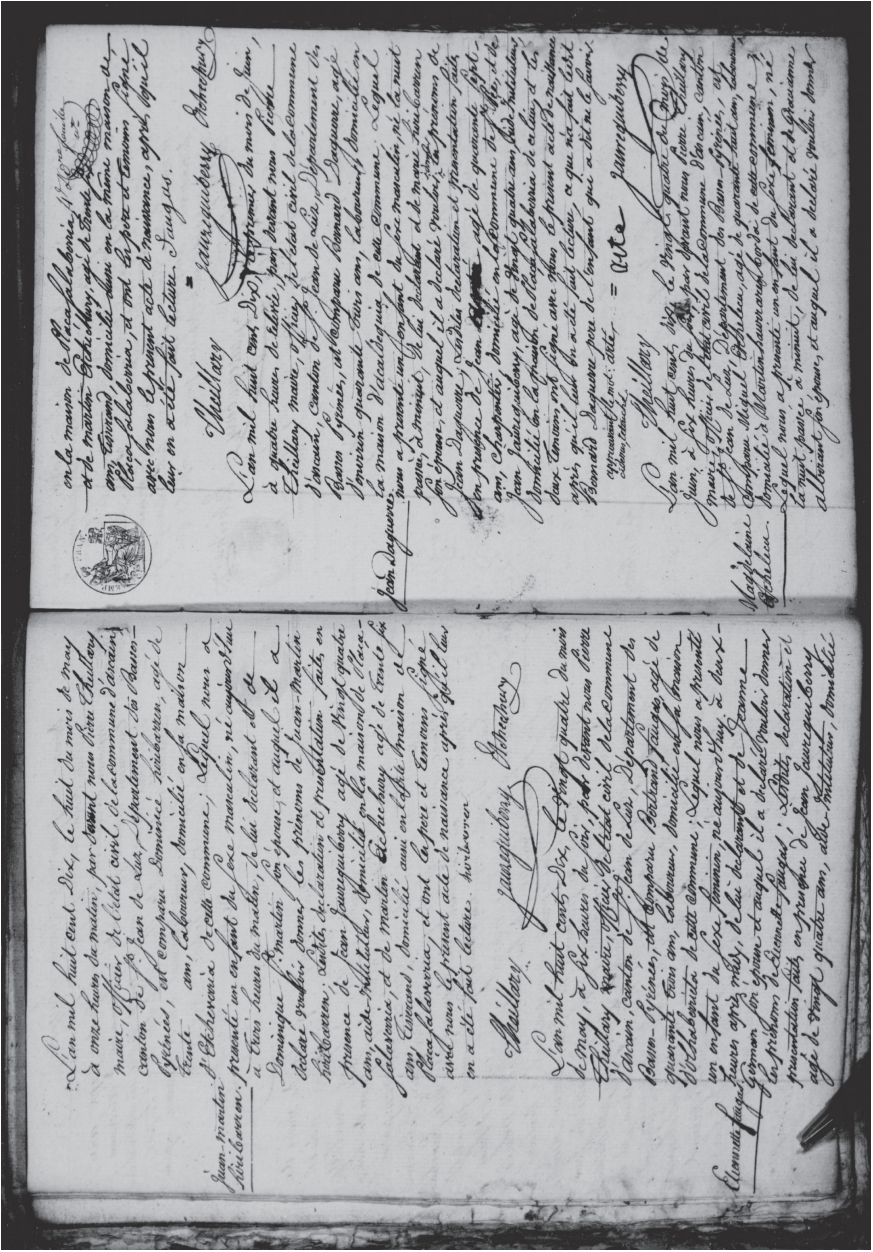 L'an mil huit cent Dix, le huit du mois de may
à onze heures du matin, par devant nous Pierre Theillary
maire, officier de l'état civil de la commune d'arcain,
canton de St Jean de Luz, Département des Basses-
Pyrénées, est comparu Dominice hiribarren, agé de
trente ans, Laboureur, domicilié en la maison
Jean-martin d'Etcheverria de cette commune, Lequel nous a
hiribarren. presenté un enfant du sexe masculin, né aujourd'hui
à trois heures du matin, de lui declarant et de
Domenique St martin son épouse, et auquel il a
declaré vouloir donner les prénoms de Jean-Martin
hiribarren, Lesdites declaration et presentation faites en
presence de Jean Jaureguiberry agé de vingt quatre
ans, aide instituteur, domicilié en la maison de Plaza-
falsaveria, et de martin Etchechury agé de trente six
ans, Tisserand, domicilié aussi en lad. maison de
Plazafalsaveria; et ont les pere et temoins signé
avec nous le present acte de naissance après qu'il leur
en a été fait lecture. hiribarren
Theillary Jaureguiberry Etchechury
L'an mil huit cent, Dix, le vingt quatre du mois
de may, à six heures du soir, par devant nous Pierre
Theillary maire, officier de l'etat civil de la commune
d'arcain, canton de St Jean de Luz, Département des
Basses-Pyrénées, est comparu Bertrand fauges, agé de
quarante trois ans, Laboureur, domicilié en la maison
d'olhaberrieta de cette commune; Lequel nous a presenté
un enfant du sexe feminin, né aujourd'hui, à deux
Etiennette fauges heures après midy, de lui declarant et de Jeanne
Germon son epouse et auquel il a declaré vouloir donner
les prénoms de Etiennette fauges; Lesdites declaration et
presentation faites en presence de Jean Jaureguiberry
agé de vingt quatre ans, aide instituteur, domicilié
en la maison de Plazafalsaveria
et de martin Etchechury, agé de trente
ans, Tisserand, domicilié aussi en la même maison de
Plazafalsaveria, et ont les pere et temoins signé
avec nous le present acte de naissance, après, qu'il
leur en a été fait lecture. fauges.
Theillary Jaureguiberry Etchechury
L'an mil huit cent, Dix, du mois de Juin,
à quatre heures de relevée, par devant nous Pierre
Theillary maire, officier de l'etat civil de la commune
d'arcain, canton de St Jean de Luz, Département des
Basses Pyrénées, est comparu Bernard Daguerre, agé
d'environ quarante trois ans, laboureur, domicilié en
la maison de cette commune. Lequel
Jean Daguerre. nous a presenté un enfant du sexe masculin, né la nuit
passée, à minuit, de lui declarant et de marie hiribarren
son épouse, et auquel il a declaré vouloir donner les prénoms de
Jean Daguerre, Lesdites declaration et presentation faites
en presence de Jean agé de quarante sept
ans, Charpentier, domicilié en la commune de et de
Jean Jaureguiberry, agé de vingt quatre ans, aide instituteur,
domicilié en la maison de Plazafalsaveria de ce lieu, et les
deux temoins ont signé avec nous le présent acte de naissance
après, qu'il leur en a été fait lecture, ce que n'a fait ledit
Bernard Daguerre pere de l'enfant qui a dit ne savoir
approuvant le mot
Theillary Jaureguiberry
L'an mil huit cent, dix, le vingt quatre du mois de
Juin, à six heures du par devant nous Pierre Theillary
maire, officier de l'etat civil de la commune d'arcain, canton
de St Jean de Luz, Département des Basses Pyrénées, est
Magdelaine comparu Miquel Etchelecu, agé de quarante huit ans, laboureur,
Etchelecu. domicilié à Martinhaurrarenborda de cette commune;
Lequel nous a presenté un enfant du sexe feminin, né
la nuit passée à minuit, de lui declarant et de Gracianne
son épouse, et auquel il a declaré vouloir donner